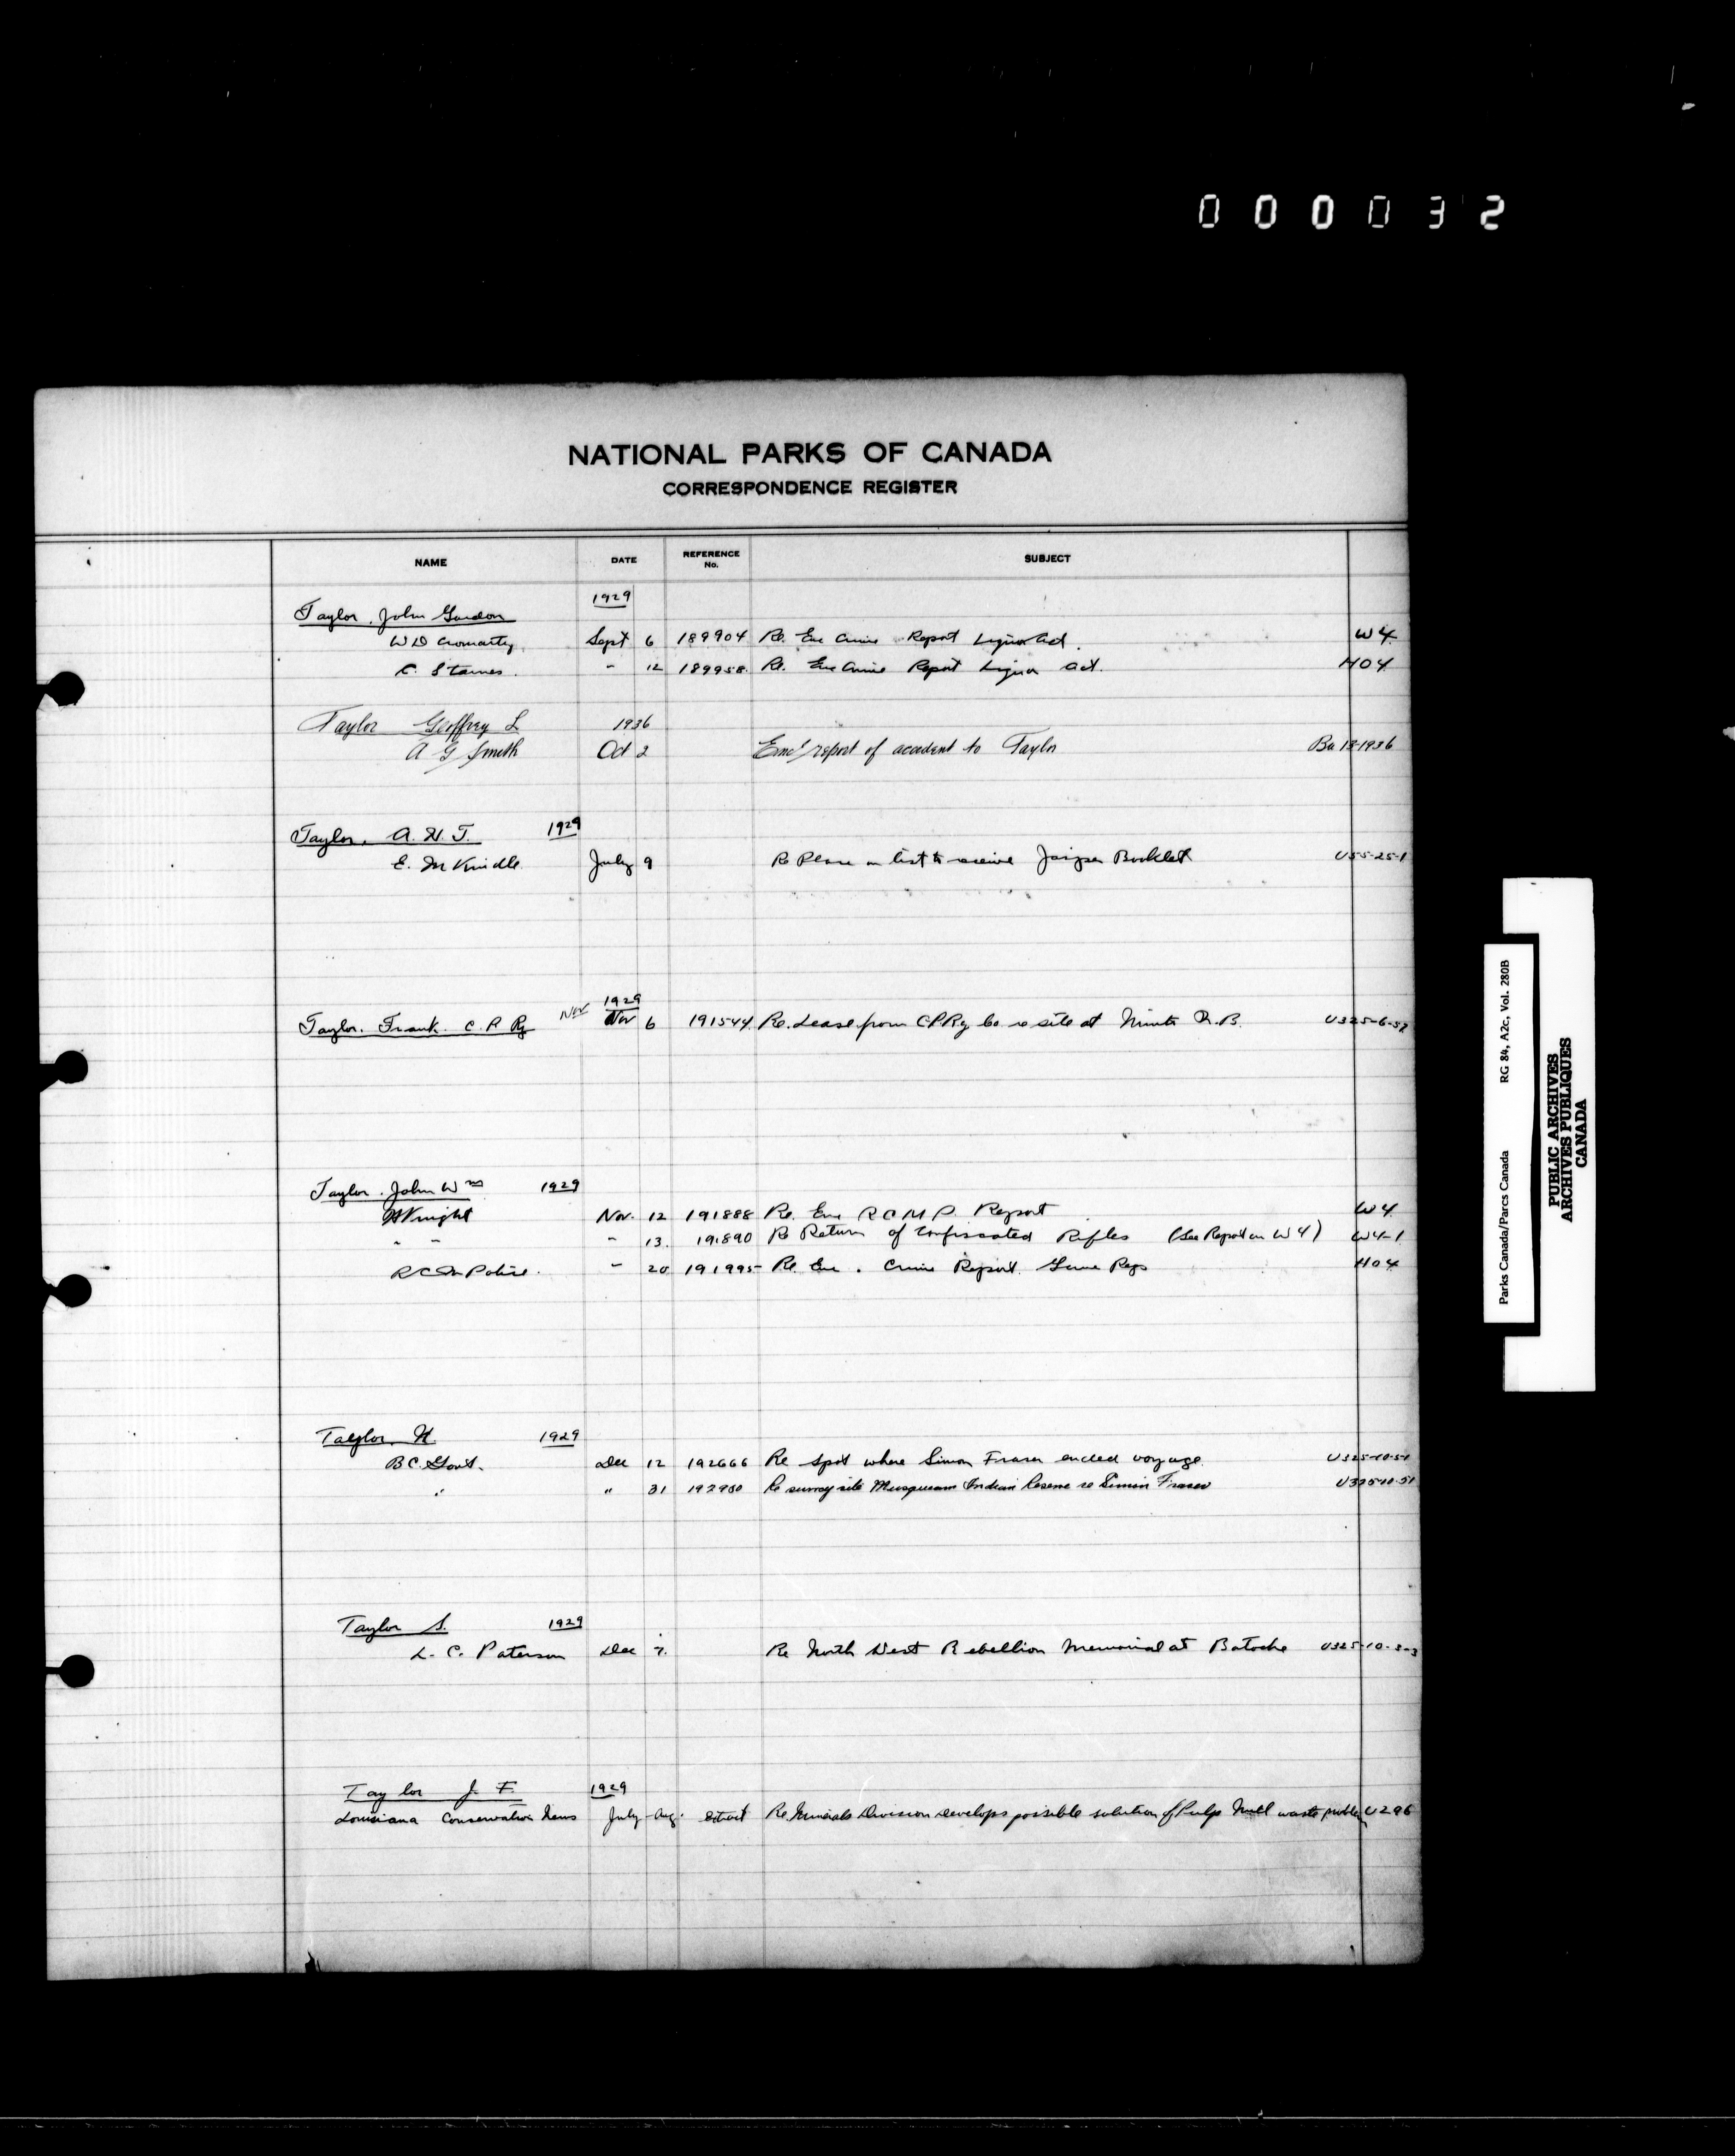 000032
NATIONAL PARKS OF CANADA
CORRESPONDENCE REGISTER
NAME DATE REFERENCE No. SUBJECT
1929
Taylor, John Gordon
W D Cromarty Sept 6 189904 Re. Enc Crime Report Liquor Act. W4
C. Starnes. " 12 189958. Re. Enc Crime Report Liquor Act. HO4
Taylor Geoffrey L 1936
A G Smith Oct 2 Encl report of accident to Taylor Ba 13-1936
Taylor, A. H. J. 1929
E. M Kindle July 9 Re Place on list to receive Jasper Booklet U55-25-1
1929
Taylor, Frank. C. P. Ry Nov Nov 6 191544 Re. Lease from C P Ry Co re site at N.B. U325-6-
Taylor, John Wm 1929
H Knight Nov. 12 191888 Re. Enc R C M P. Report W4
" " " 13. 191890 Re Return of Confiscated Rifles (See Report on W4) W4-1
R C M Police. " 20 191995 Re Enc. Crime Report. Game Regs HO4
Taylor, H. 1929
B C. Govt. Dec 12 192666 Re spot where Simon Fraser ended voyage. U325-10-51
" " 31 192980 Re survey site Musqueam Indian Reserve re Simon Fraser U325-10-51
Taylor S. 1929
L. C. Paterson Dec 7. Re North West Rebellion Memorial at Batoche U325-10-3-3
Taylor J. F. 1929
Louisiana Conservation News July-Aug. Extract Re. Minerals Division develops possible solution of Pulp Mill waste problem U296
Parks Canada/Parcs Canada RG 84, A2c, Vol. 280B
PUBLIC ARCHIVES
ARCHIVES PUBLIQUES
CANADA